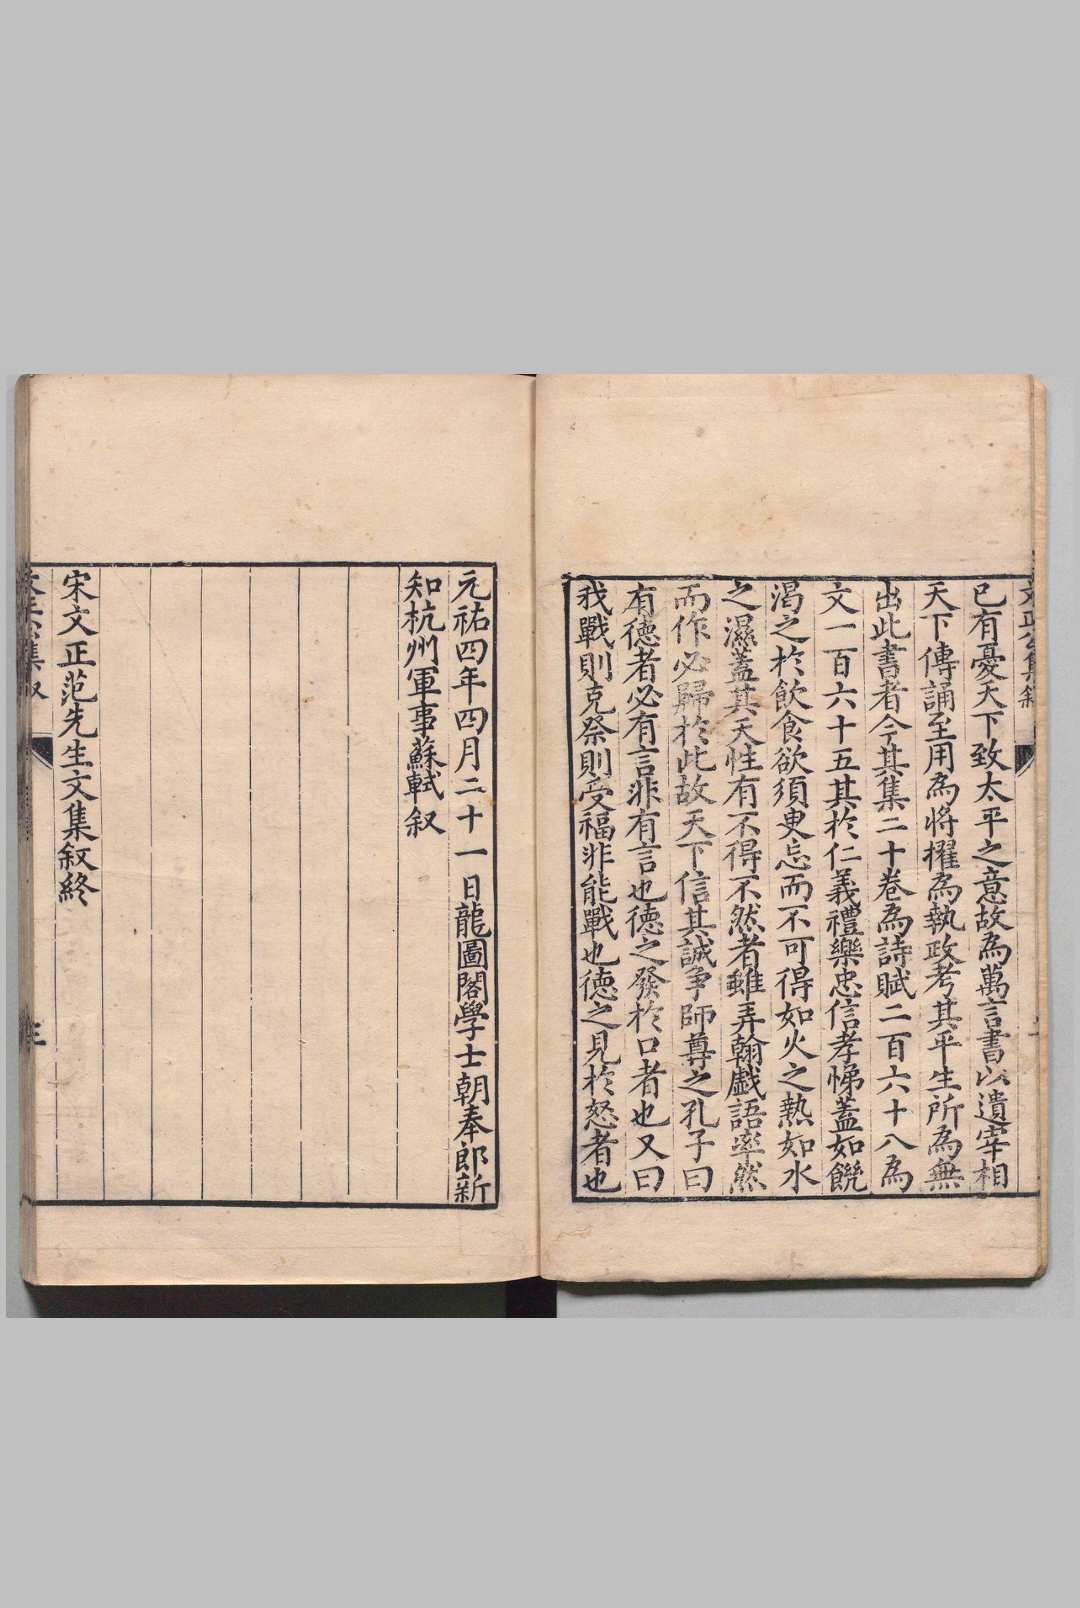 已有憂天下致太平之意故為萬言書以遺宰相
天下傳誦至用為將擢為執政考其平生所為無
出此書者今其集二十卷為詩賦二百六十八為
文一百六十五其於仁義禮樂忠信孝悌蓋如饑
渴之於飲食欲須臾忘而不可得如火之熱如水
之濕蓋其天性有不得不然者雖弄翰戲語率然
而作必歸於此故天下信其誠争師尊之孔子曰
有德者必有言非有言也德之發於口者也又曰
我戰則克祭則受福非能戰也德之見於怒者也
元祐四年四月二十一日龍圖閣學士朝奉郎新
知杭州軍事蘇軾叙
宋文正范先生文集叙終